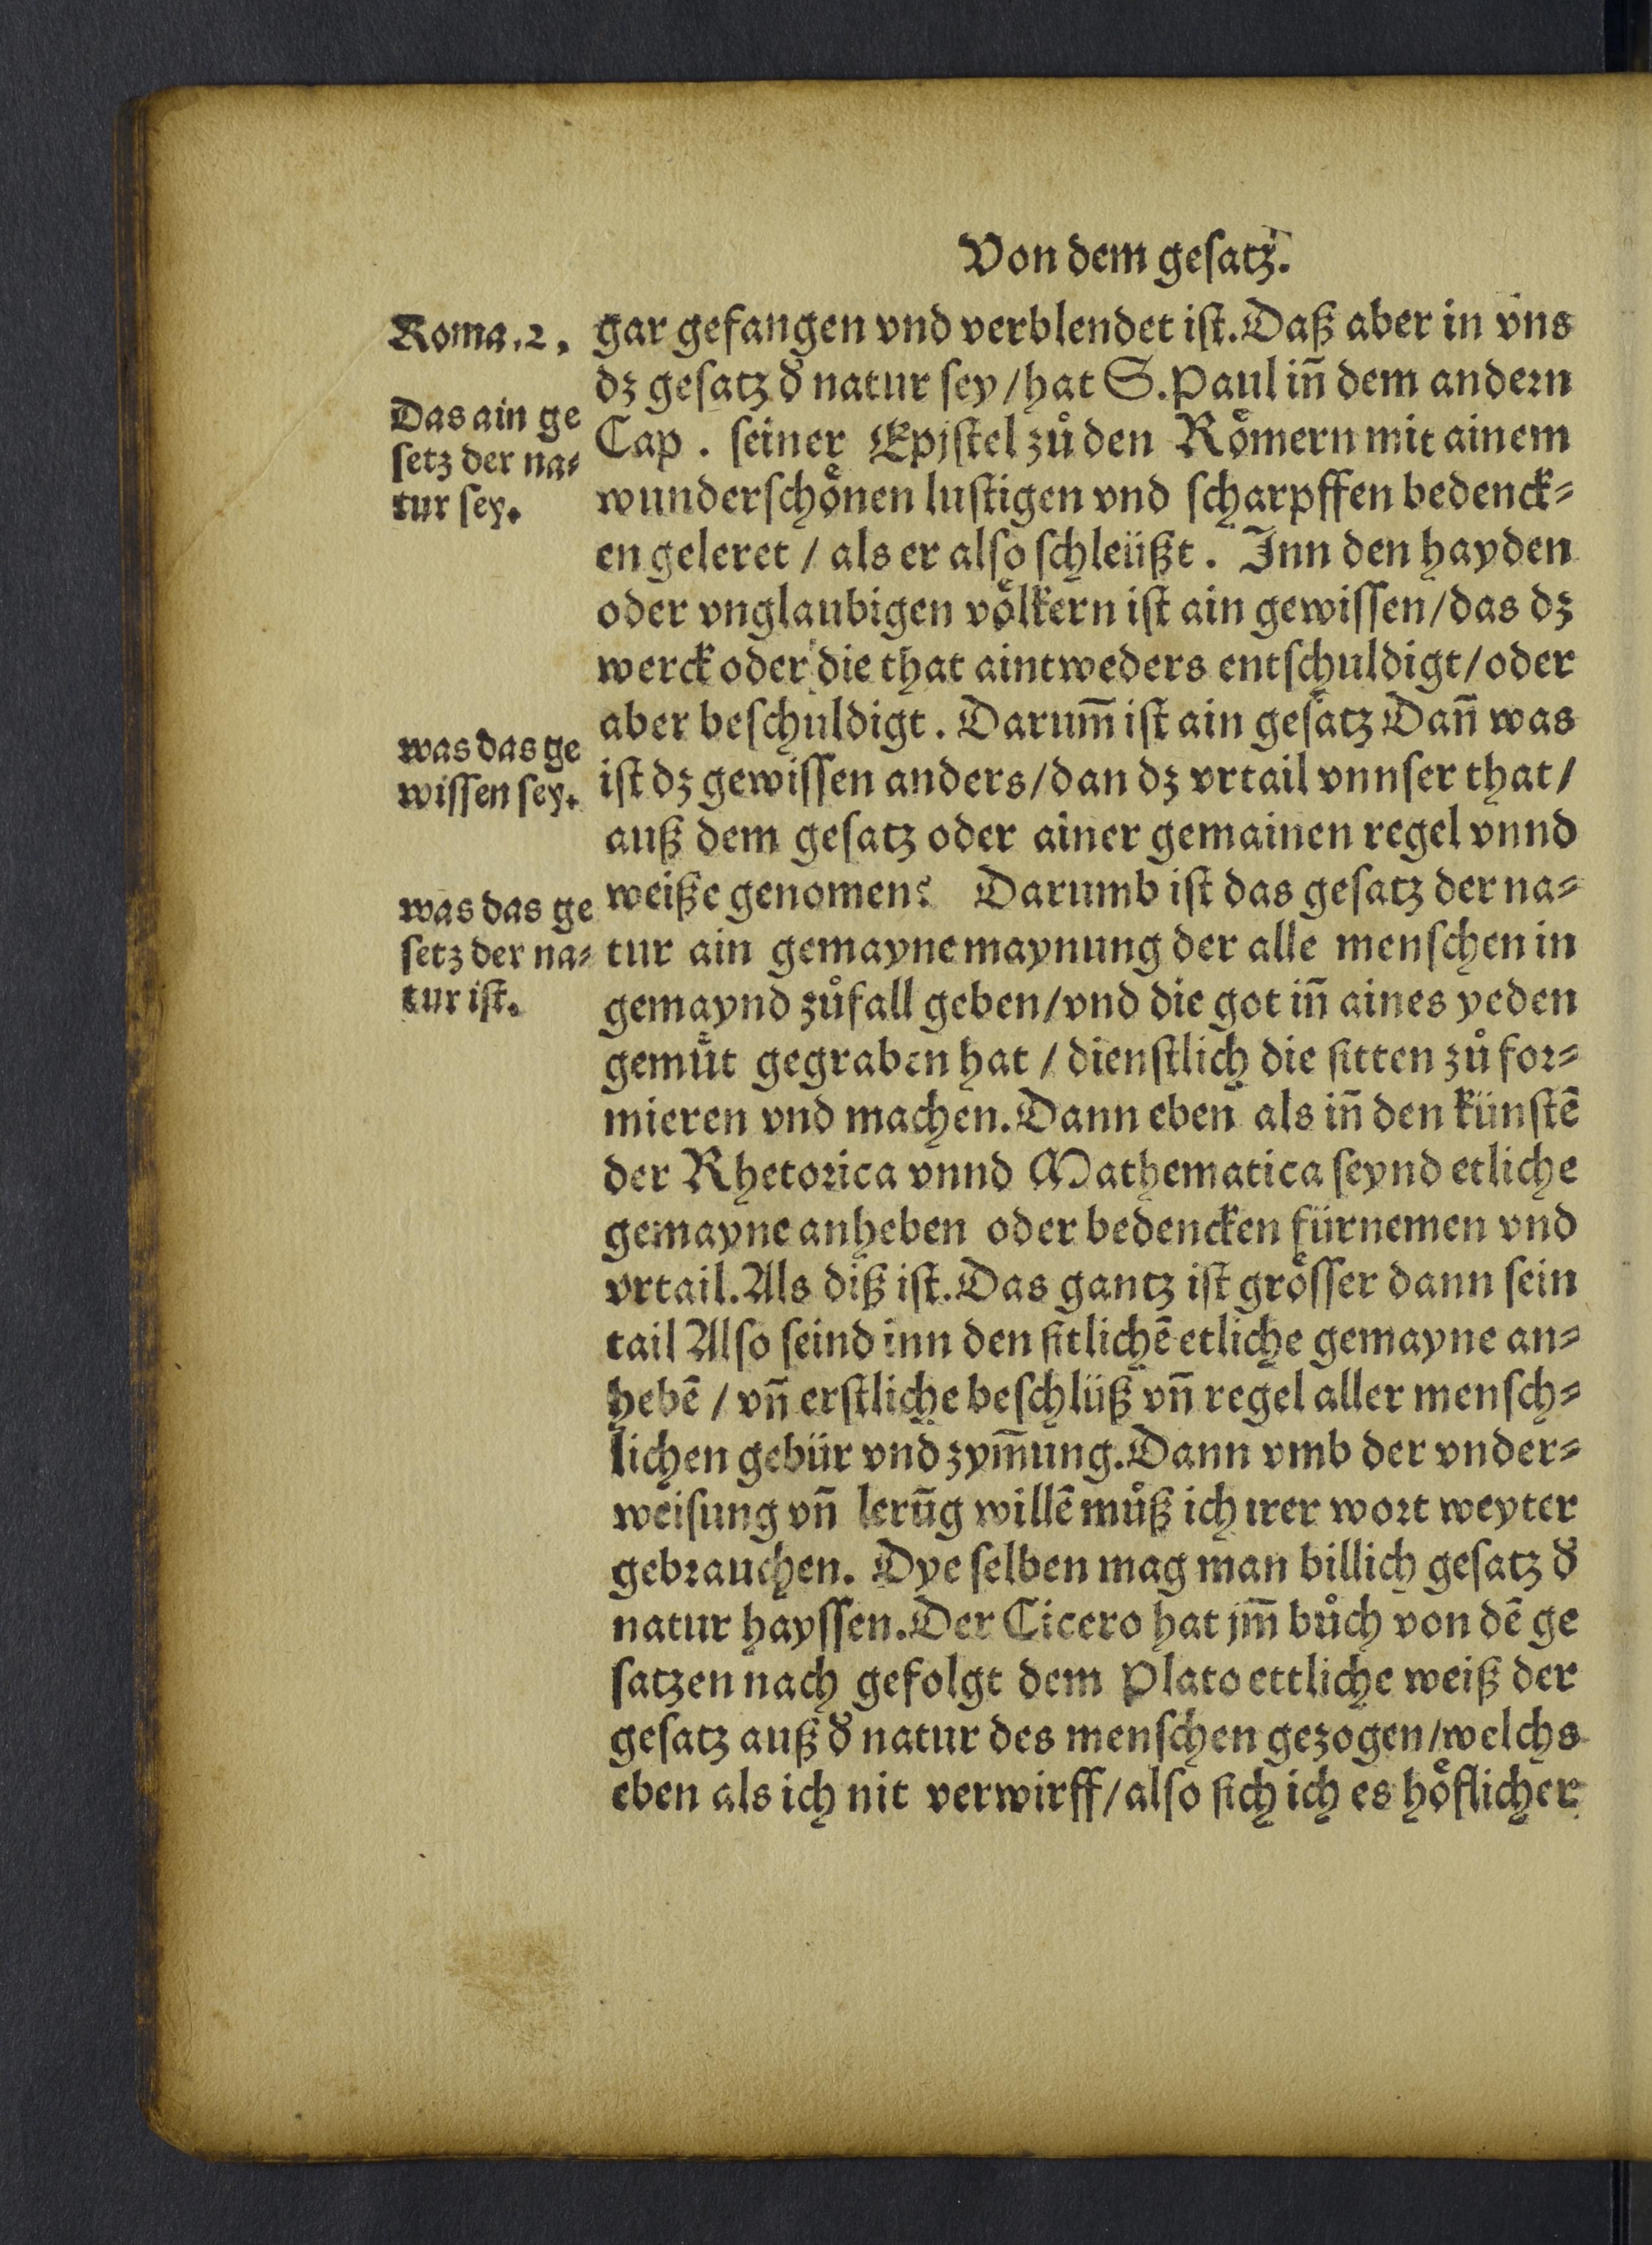 Von dem geſatz.
Roma.2.
Das ain ge
ſetz der na⸗
tur ſey.
was das ge
wiſſen ſey.
was das ge
ſetz der na⸗
tur iſt.
gar gefangen vnd verblendet iſt. Daß aber in vns
dz geſatz d̕ natur ſey / hat S. Paul in̄ dem andern
Cap . ſeiner Epjſtel zů den Roͤmern mit ainem
wunderſchoͤnen luſtigen vnd ſcharpffen bedenck⸗
en geleret / als er alſo ſchleüßt . Inn den hayden
oder vnglaubigen voͤlkern iſt ain gewiſſen / das dz
werck oder die that aintweders entſchuldigt / oder
aber beſchuldigt . Darum̄ iſt ain geſatz Dan̄ was
iſt dz gewiſſen anders / dan dz vrtail vnnſer that /
auß dem geſatz oder ainer gemainen regel vnnd
weiße genomen? Darumb iſt das geſatz der na⸗
tur ain gemayne maynung der alle menſchen in
gemaynd zůfall geben / vnd die got in̄ aines yeden
gemuͤt gegraben hat / dienſtlich die ſitten zů for⸗
mieren vnd machen. Dann eben als in̄ den künſtē
der Rhetorica vnnd Mathematica ſeynd etliche
gemayne anheben oder bedencken fürnemen vnd
vrtail. Als diß iſt. Das gantz iſt groͤſſer dann ſein
tail Alſo ſeind inn den ſitlichē etliche gemayne an⸗
hebē / vn̄ erſtliche beſchlüß vn̄ regel aller menſch⸗
lichen gebür vnd zym̄ung. Dann vmb der vnder⸗
weiſung vn̄ lerūg willē můß ich irer wort weyter
gebrauchen. Dye ſelben mag man billich geſatz d̕
natur hayſſen. Der Cicero hat jm̄ bůch von dē ge
ſatzen nach gefolgt dem Plato ettliche weiß der
geſatz auß d̕ natur des menſchen gezogen / welchs
eben als ich nit verwirff / alſo ſich ich es hoͤflicher